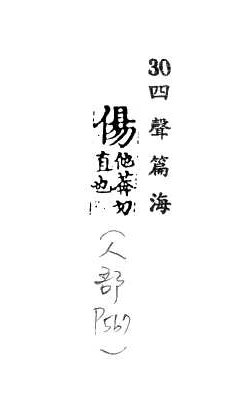 30四聲篇海
偒
他莽切
直也
（人部P567）